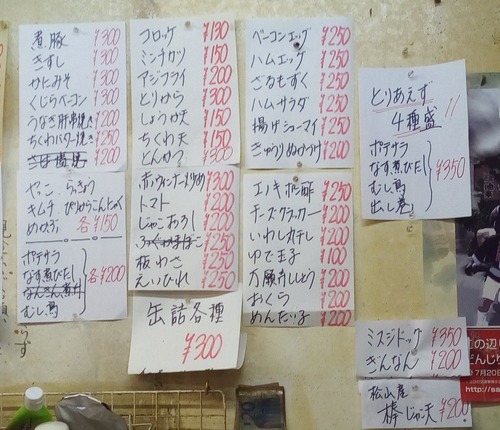 煮豚 ¥300
きずし ¥300
かにみそ ¥300
くじらベーコン ¥300
うなぎ肝串焼き ¥200
ちくわバター焼き ¥200
¥200
やっこ らっきょう
キムチ ぴりからこんにゃく
めかぶ 各¥150
ポテサラ
なす煮びたし
なんきん煮付
むし鳥
各¥200
コロッケ ¥130
ミンチカツ ¥150
アジフライ ¥200
とりから ¥300
しょうが天 ¥150
ちくわ天 ¥150
とんかつ ¥300
赤ウィンナー炒め ¥300
トマト ¥200
じゃこおろし ¥200
¥250
板わさ ¥250
えいひれ ¥250
缶詰各種
¥300
ベーコンエッグ ¥250
ハムエッグ ¥250
ざるもずく ¥250
ハムサラダ ¥250
揚げシューマイ ¥250
きゅうりぬか漬け ¥200
エノキポン酢 ¥250
チーズクラッカー ¥200
いわし丸干し ¥200
ゆで玉子 ¥100
万願寺ししとう ¥200
おくら ¥200
めんたい子 ¥200
とりあえず
4種盛!!
ポテサラ
なす煮びたし
むし鳥
出し巻
¥350
ミスジドッグ ¥350
ぎんなん ¥200
松山産
棒じゃこ天 ¥200
の辺り
だんじり
7月20
http://ea